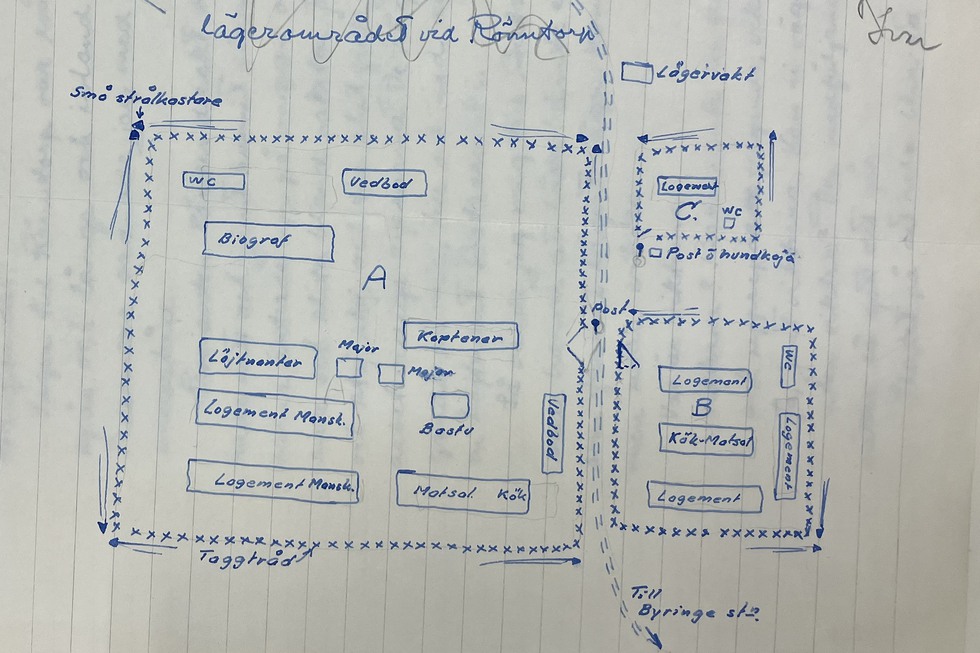 Lägerområdet vid Rönntorp
Lägervakt
Små strålkastare
WC
Vedbod
Biograf
A
Kaptener
Löjtnanter
Major
Major
Logement Mansk.
Bastu
Vedbod
Logement Mansk.
Matsal Kök
Taggtråd
Logement
C.
WC
Post o hundkoja
Post
Logement
WC
B
Kök-Matsal
Logement
Logement
Till
Byringe stn.